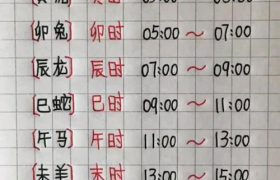 [卯兔] 卯时 05:00 ～ 07:00
[辰龙] 辰时 07:00 ～ 09:00
[巳蛇] 巳时 09:00 ～ 11:00
[午马] 午时 11:00 ～ 13:00
[未羊] 未时 13:00 ～ 15:00